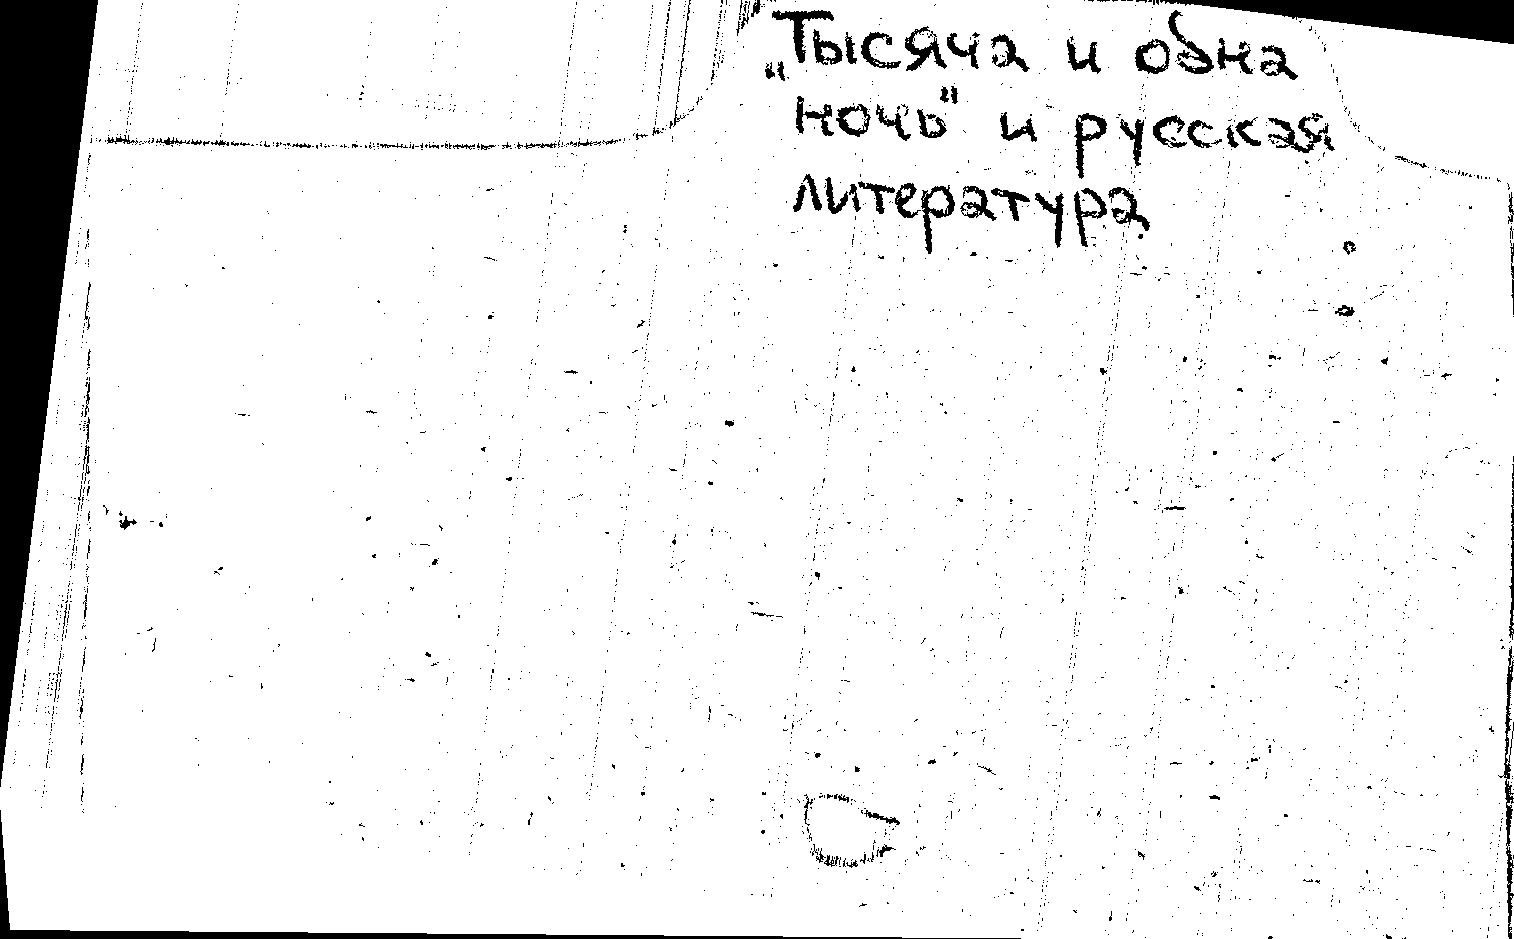 "Тысяча и одна
ночь" и русская
литература